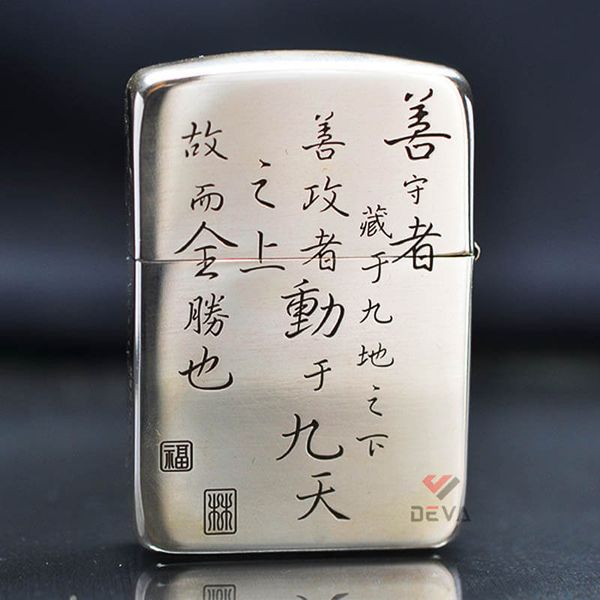 善守者
藏于九地之下
善政者動于九天
之上
故而全勝也
福
林
DEVA